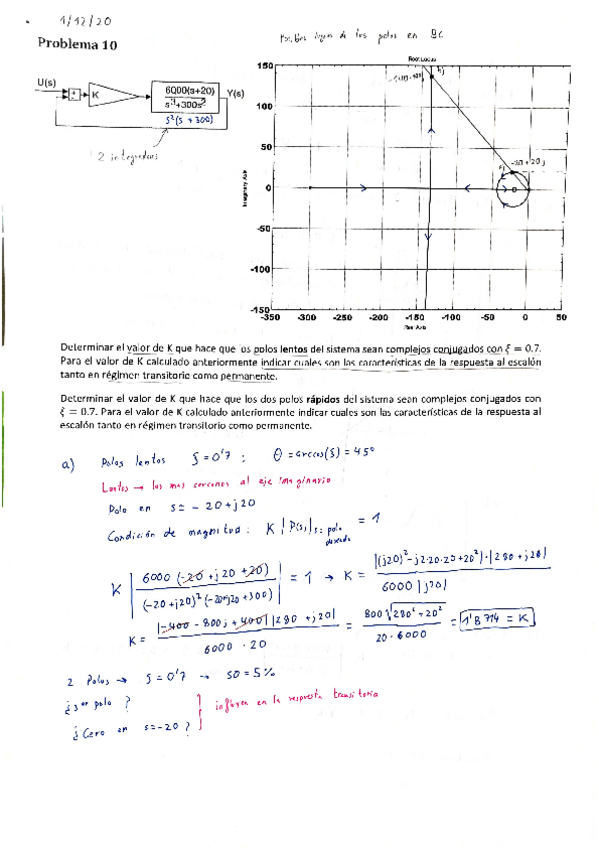 1/12/20
Problema 10
Posibles lugares de los polos en BC
U(s)
K
6000(s+20)
s³+300s²
s²(s + 300)
Y(s)
2 integradores
Root Locus
150
100
50
0
-50
-100
-150
-350 -300 -250 -200 -150 -100 -50 0 50
Imaginary Axis
Real Axis
-20 + 20j
Determinar el valor de K que hace que los polos lentos del sistema sean complejos conjugados con ξ = 0.7.
Para el valor de K calculado anteriormente indicar cuales son las características de la respuesta al escalón
tanto en régimen transitorio como permanente.
Determinar el valor de K que hace que los dos polos rápidos del sistema sean complejos conjugados con
ξ = 0.7. Para el valor de K calculado anteriormente indicar cuales son las características de la respuesta al
escalón tanto en régimen transitorio como permanente.
a) Polos lentos ξ = 0'7 ; θ = arccos(ξ) = 45°
Lentos → los mas cercanos al eje imaginario
Polo en s = - 20 + j20
Condición de magnitud : K |P(s)| s = polo deseado = 1
K | 6000 (-20 + j20 + 20) / (-20 + j20)² (-20 + j20 + 300) | = 1 → K = |(j20)² - j2·20·20 + 20²| · |280 + j20| / 6000 |j20|
K = |-400 - 800j + 400| |280 + j20| / 6000 · 20 = 800 √280² + 20² / 20 · 6000 = 1'8714 = K
2 Polos → ξ = 0'7 → SO = 5%
¿3er polo ?
¿Cero en s = -20 ?
influyen en la respuesta transitoria